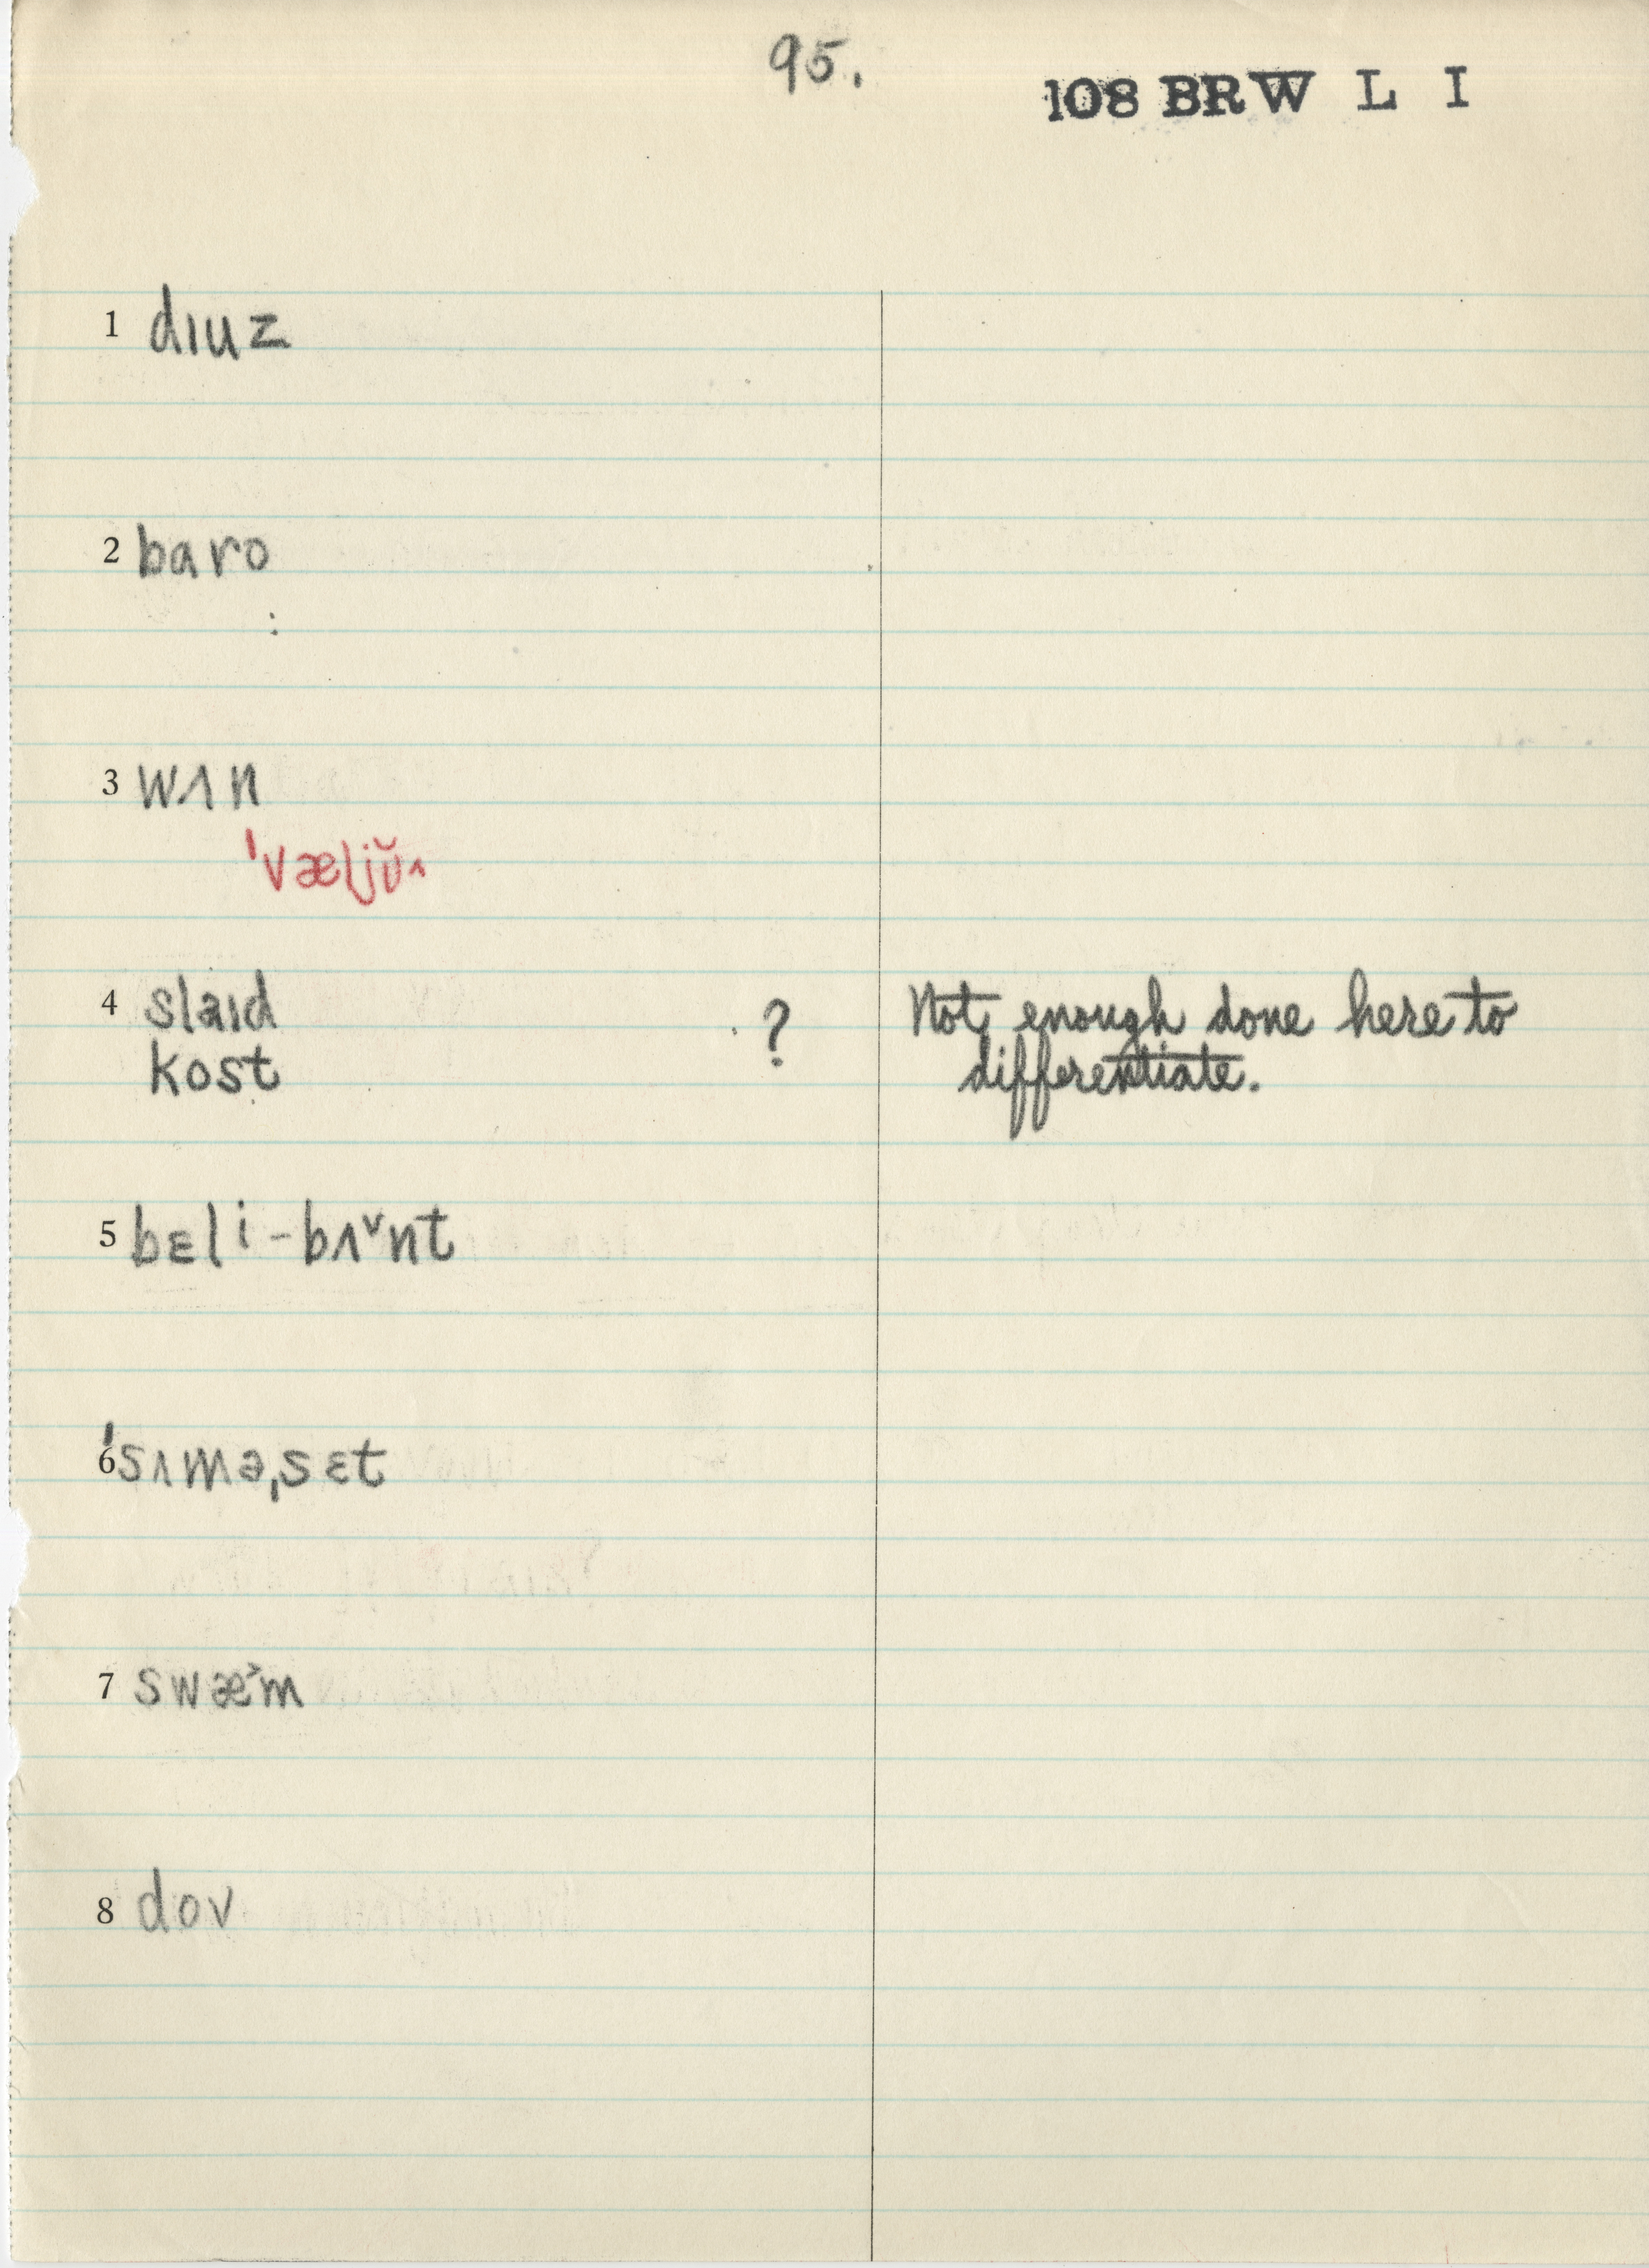 95.
108 BRW L I
1 dɪuz
2 baro
3 wʌn
'væljŭ^
4 slaɪd ? Not enough done here to
kost differentiate.
5 bɛli-bʌ˅nt
6 'sʌmə,sɛt
7 swæ˃m
8 dov